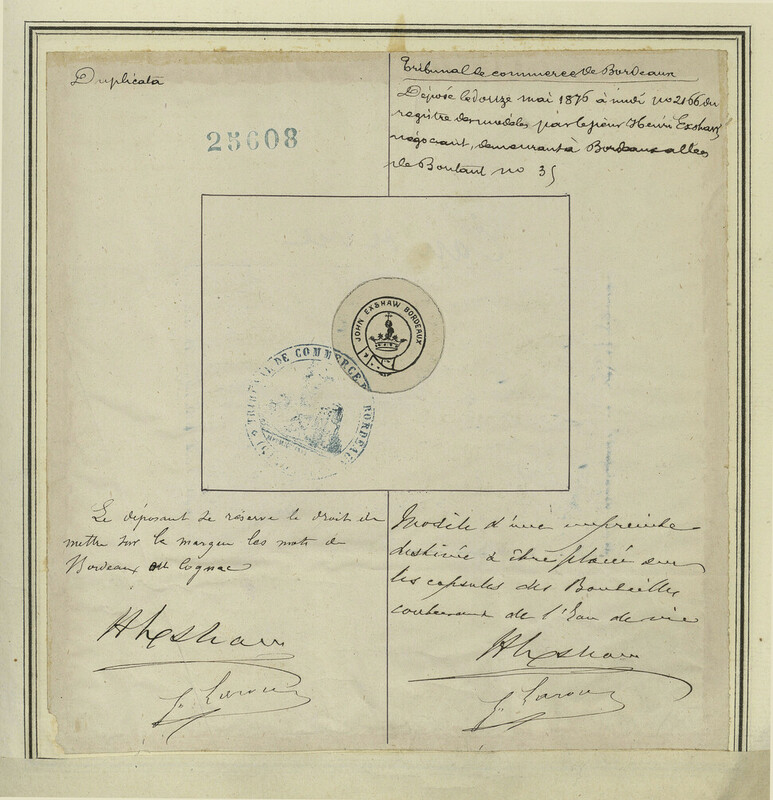 Duplicata
25608
Tribunal de commerce de Bordeaux
Déposé le douze mai 1876 à midi no 2166 du
registre des modèles par le sieur Henri Exshaw
négociant, demeurant à Bordeaux allées
de Boutaut no 35
JOHN EXSHAW BORDEAUX
TRIBUNAL DE COMMERCE BORDEAUX
Le déposant se réserve le droit de
mettre sur la marque les mots de
Bordeaux ou Cognac
HExshaw
Modèle d'une empreinte
destinée à être placée sur
les capsules des Bouteilles
contenant de l'Eau de vie
HExshaw